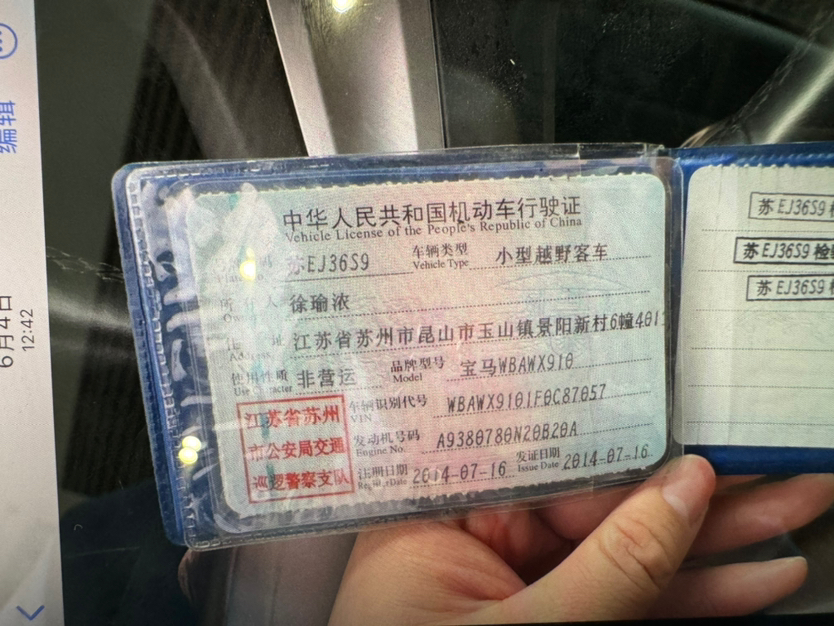 编辑
6月4日
12:42
中华人民共和国机动车行驶证
Vehicle License of the People's Republic of China
苏EJ36S9 车辆类型 Vehicle Type 小型越野客车
所有人 徐瑜浓
住址 Address 江苏省苏州市昆山市玉山镇景阳新村6幢401
使用性质 Use Character 非营运 品牌型号 Model 宝马WBAWX910
车辆识别代号 VIN WBAWX9101F0C87057
发动机号码 Engine No. A9380780N20B20A
注册日期 Register Date 2014-07-16 发证日期 Issue Date 2014-07-16
江苏省苏州
市公安局交通
巡逻警察支队
苏EJ36S9
苏EJ36S9 检
苏EJ36S9